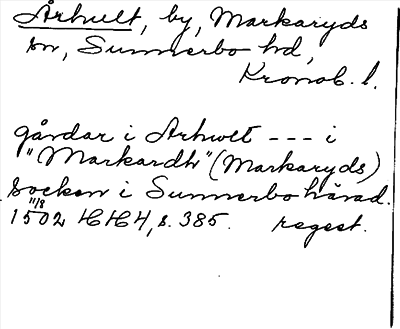 Århult, by, Markaryds
sn, Sunnerbo hd,
Kronob. l.
gårdar i Arhwlt --- i
"Markardh" (Markaryds)
socken i Sunnerbo härad.
11/8
1502 HH4, s. 385. regest.